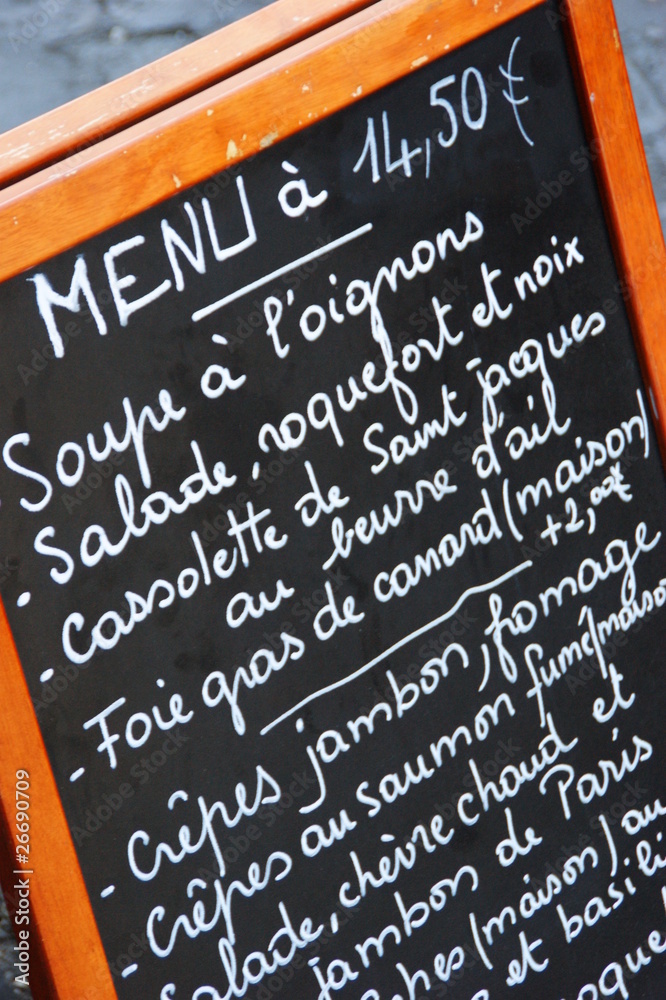 MENU à 14,50 €
Soupe à l'oignons
- Salade, roquefort et noix
- Cassolette de Saint jacques
au beurre d'ail
- Foie gras de canard (maison)
+2,00€
- Crêpes jambon, fromage
- Crêpes au saumon fumé (maison
Salade, chèvre chaud et
jambon de Paris
(maison) au
et basili
Adobe Stock | #26690709